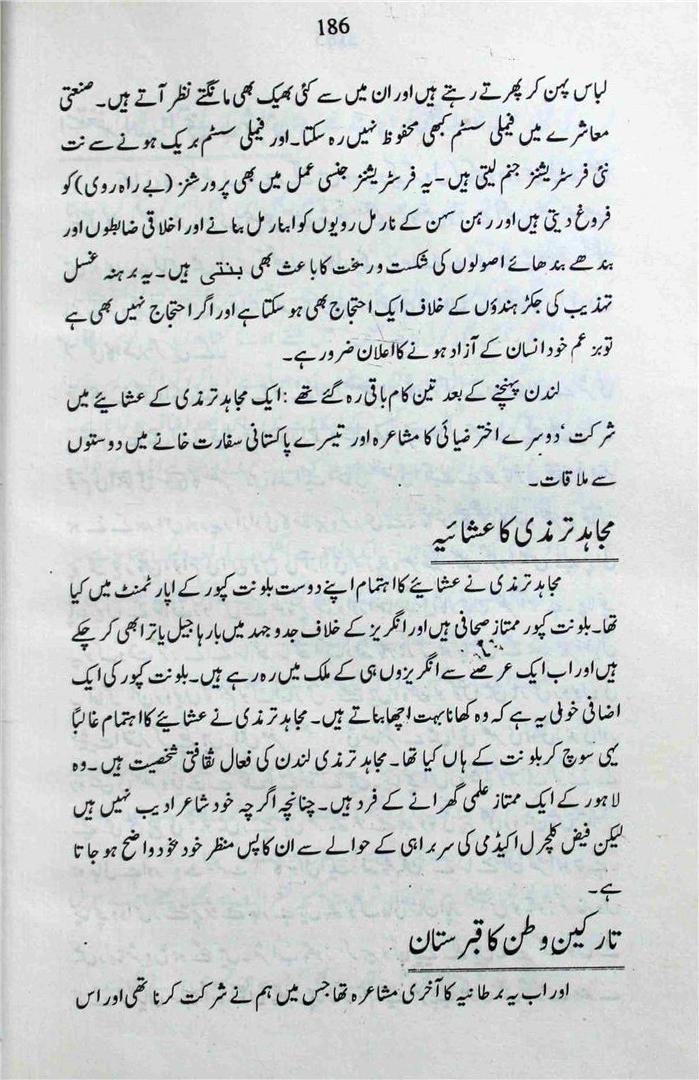 186
لباس پہن کر پھرتے رہتے ہیں اور ان میں سے کئی بھیک بھی مانگتے نظر آتے ہیں۔ صنعتی
معاشرے میں فیملی سسٹم کبھی محفوظ نہیں رہ سکتا۔ اور فیملی سسٹم بریک ہونے سے نت
نئی فرسٹریشنز جنم لیتی ہیں۔ یہ فرسٹریشنز جنسی عمل میں بھی پرورشنز (بے راہ روی) کو
فروغ دیتی ہیں اور رہن سہن کے نارمل رویوں کو ابنارمل بنانے اور اخلاقی ضابطوں اور
بندھے بندھائے اصولوں کی شکست و ریخت کا باعث بھی بنتی ہیں۔ یہ برہنہ غسل
تہذیب کی جکڑ بندوں کے خلاف ایک احتجاج بھی ہو سکتا ہے اور اگر احتجاج نہیں بھی ہے
تو بزعم خود انسان کے آزاد ہونے کا اعلان ضرور ہے۔
لندن پہنچنے کے بعد تین کام باقی رہ گئے تھے : ایک مجاہد ترمذی کے عشائیے میں
شرکت ‘ دوسرے اختر ضیائی کا مشاعرہ اور تیسرے پاکستانی سفارت خانے میں دوستوں
سے ملاقات۔
مجاہد ترمذی کا عشائیہ
مجاہد ترمذی نے عشائیے کا اہتمام اپنے دوست بلونت کپور کے اپارٹمنٹ میں کیا
تھا۔ بلونت کپور ممتاز صحافی ہیں اور انگریز کے خلاف جدوجہد میں بارہا جیل یاترا بھی کر چکے
ہیں اور اب ایک عرصے سے انگریزوں ہی کے ملک میں رہ رہے ہیں۔ بلونت کپور کی ایک
اضافی خوبی یہ ہے کہ وہ کھانا بہت اچھا بناتے ہیں۔ مجاہد ترمذی نے عشائیے کا اہتمام غالباً
یہی سوچ کر بلونت کے ہاں کیا تھا۔ مجاہد ترمذی لندن کی فعال ثقافتی شخصیت ہیں۔ وہ
لاہور کے ایک ممتاز علمی گھرانے کے فرد ہیں۔ چنانچہ اگرچہ خود شاعر ادیب نہیں ہیں
لیکن فیض کلچرل اکیڈمی کی سربراہی کے حوالے سے ان کا پس منظر خود بخود واضح ہو جاتا
ہے۔
تارکین وطن کا قبرستان
اور اب یہ برطانیہ کا آخری مشاعرہ تھا جس میں ہم نے شرکت کرنا تھی اور اس